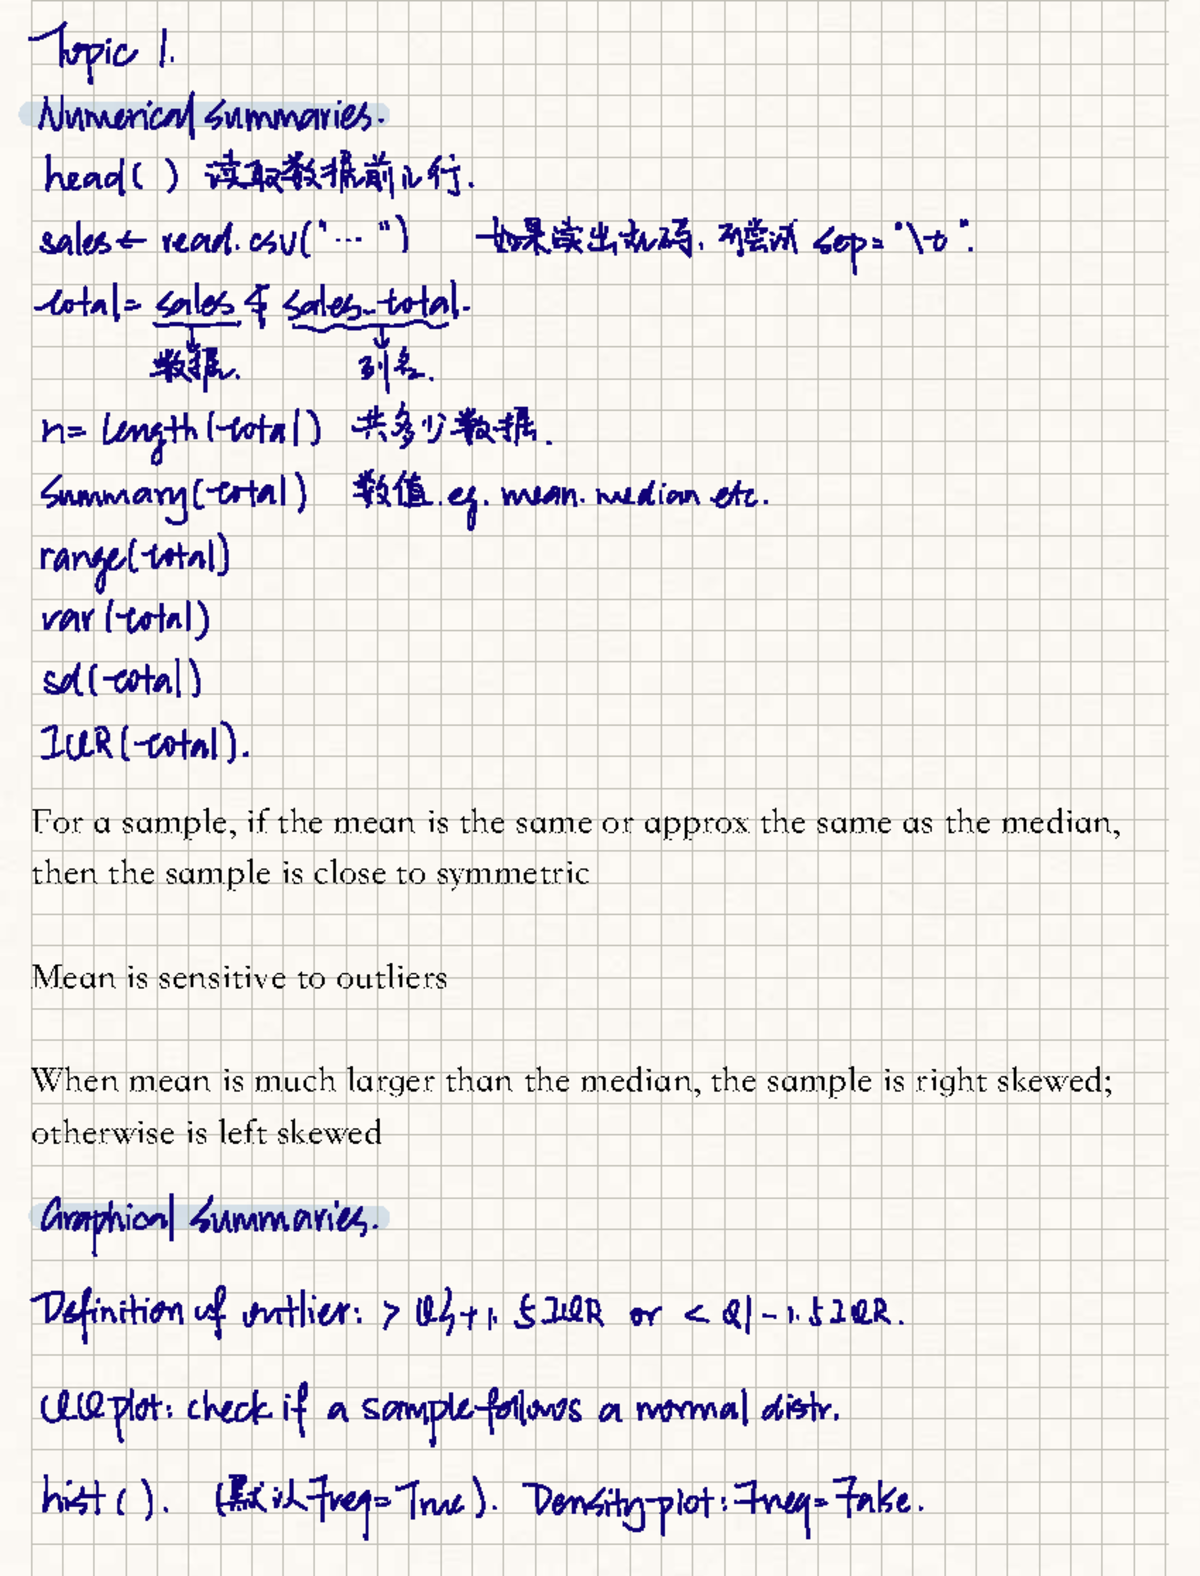 Topic 1.
Numerical summaries.
head( ) 读取数据前几行.
sales ← read.csv("... ") 如果读出乱码, 可尝试 sep="\t".
total= sales $ sales_total.
数据. 列名.
n= length(total) 共多少数据.
Summary(total) 数值.eg. mean. median etc.
range(total)
var(total)
sd(total)
IQR(total).
For a sample, if the mean is the same or approx the same as the median,
then the sample is close to symmetric
Mean is sensitive to outliers
When mean is much larger than the median, the sample is right skewed;
otherwise is left skewed
Graphical Summaries.
Definition of outlier: > Q3+1.5IQR or < Q1-1.5IQR.
QQplot: check if a sample follows a normal distr.
hist( ). (默认Freq=True). Density plot: Freq=False.